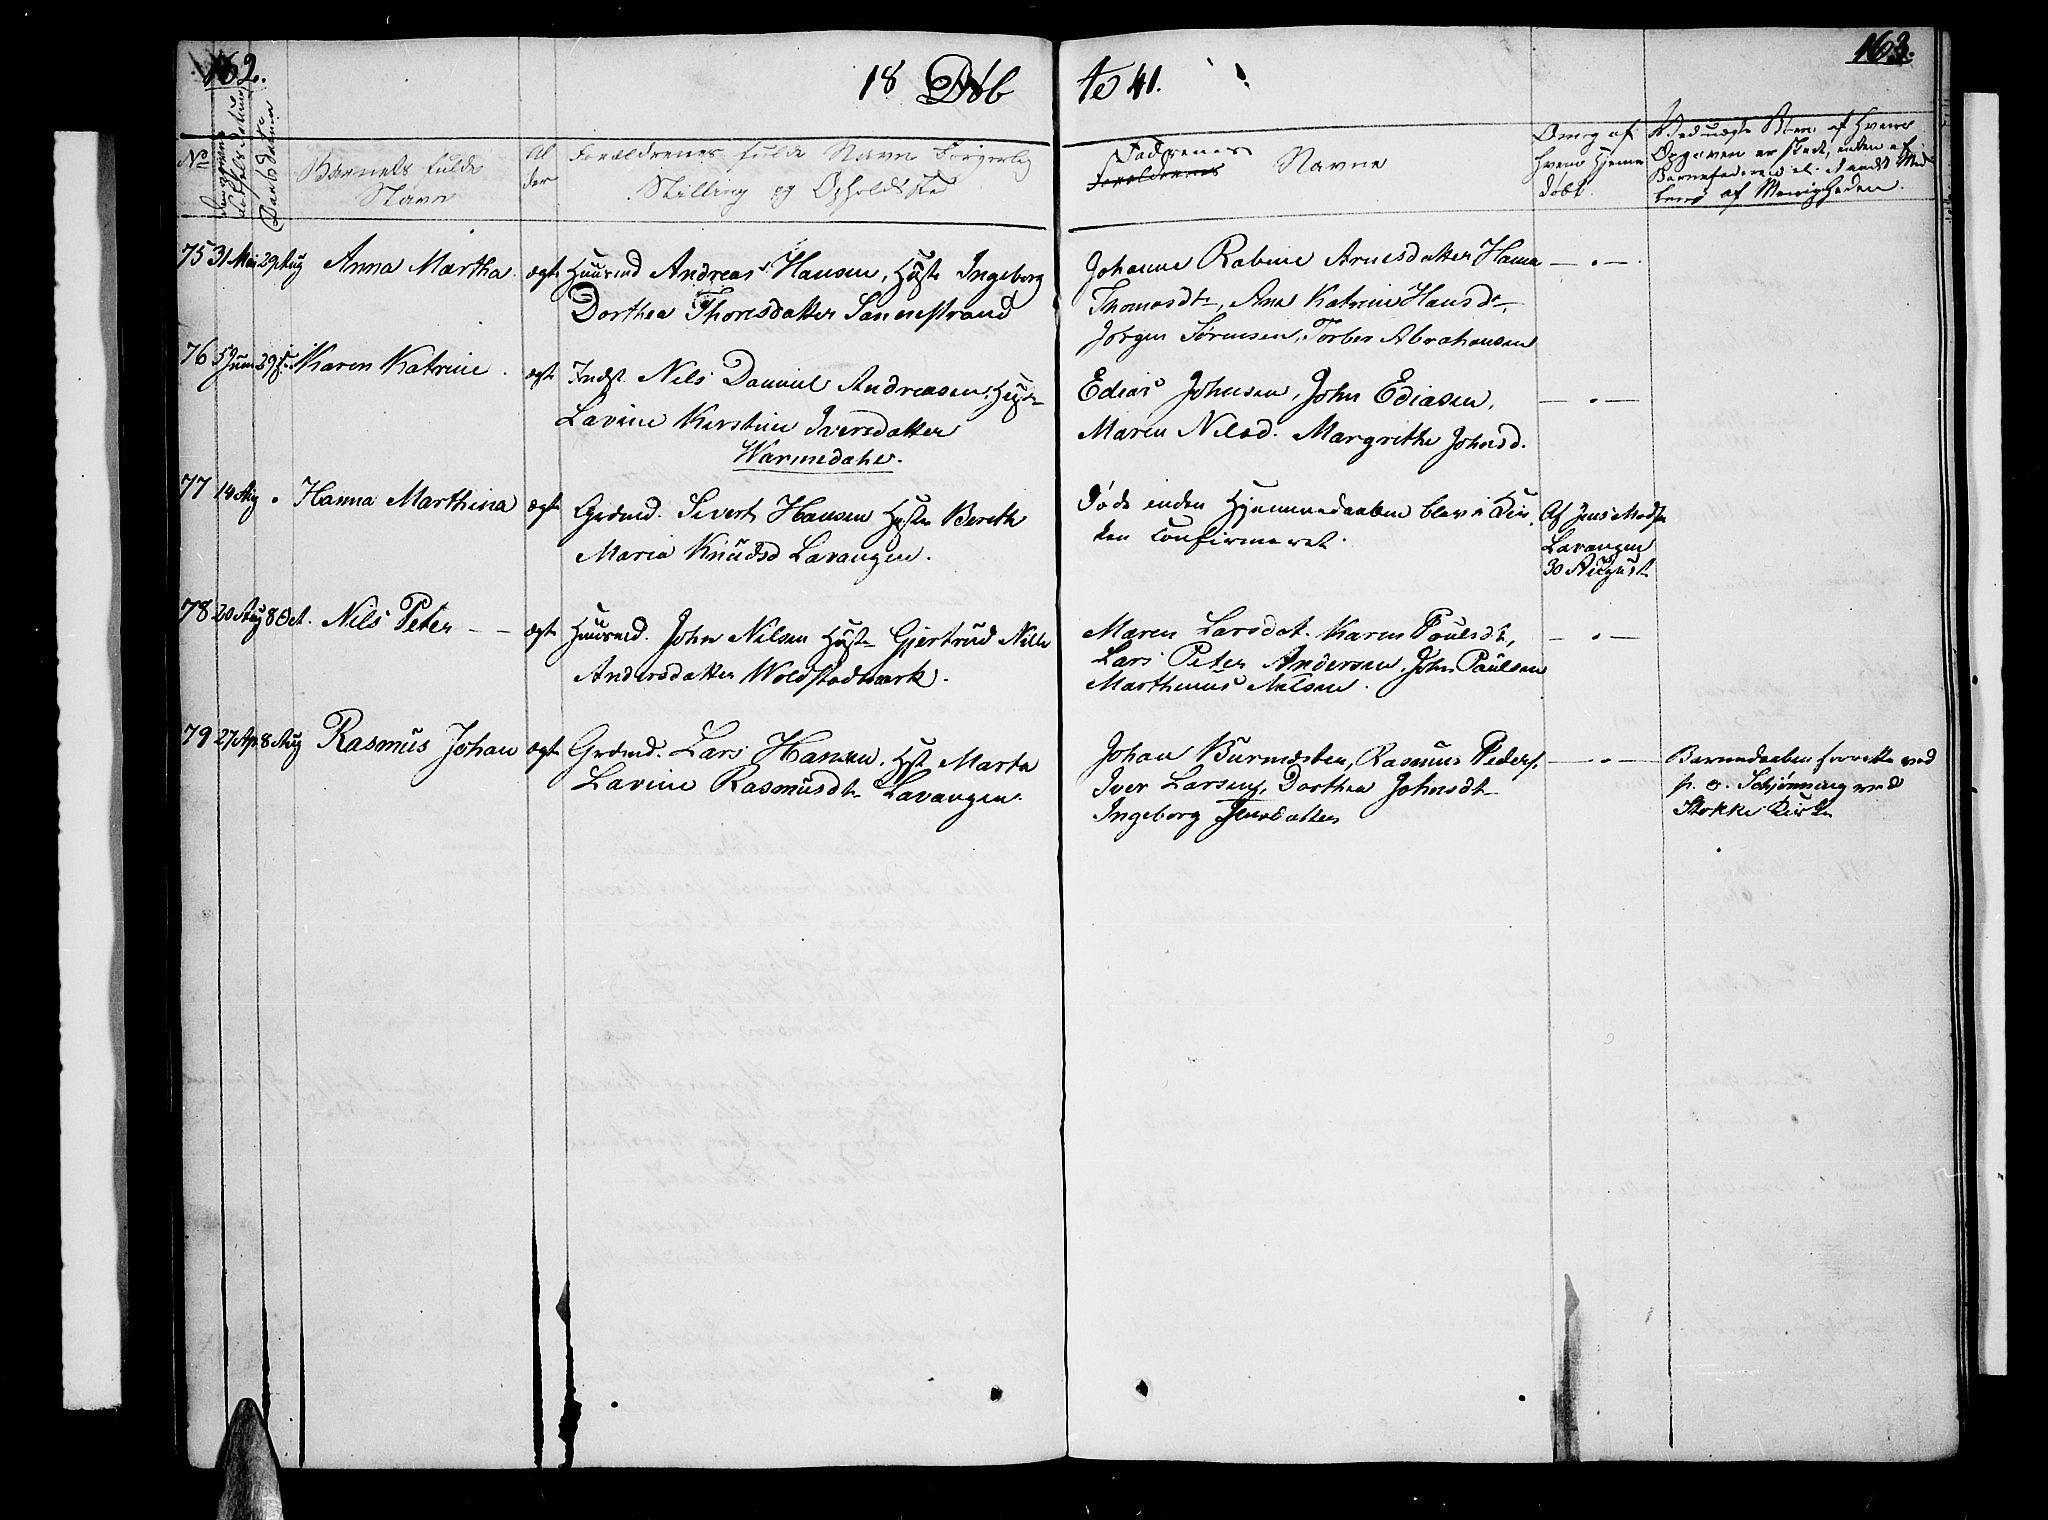 162.
18 Døb
te 41.
163.
No
Barnets fulde
Navn
Al
der
Forældrenes fulde Navn Borgerlig
Stilling og Opholdsted
Faddrenes
Forældrenes
Navne
Om og af
hvem hjemme
døbt
Ved uægte Børn af hvem
Opgaven er skedt, enten af
Barnefaderen el. et andet Med
lem af Menigheden.
75 31 Mai 29 Aug Anna Martha. ægte Huusmd Andreas Hansen, Hust Ingeborg
Dorthea Thoresdatter Sannestrand
Johanne Rabine Arnesdatter Hanna
Thomasdtr, Ane Katrine Hansdr,
Jørgen Sørensen, Torber Abrahamsen
76 5 Juni 29 Karen Katrine. ægte Indst. Nils Daniel Andreasen, Hust
Lavine Kirstine Iversdatter
Warmedahl.
Edias Johnsen, John Ediasen,
Maren Nilsd. Margrethe Johnsd.
77 14 Aug Hanna Marthina ægte Grdmd. Sivert Hansen Hustr Bereth
Maria Knudsd Lavangen.
Døde inden Hjemmedaaben blev i Kir
ken Confirmeret.
Af Jens Mads
Lavangen
30 August
78 20 Aug 8 Oct. Nils Peter ægte Huusmd. John Nilsen Hust Gjertrud Nille
Andersdatter Woldstadmark.
Maren Larsdat. Karen Poulsdt,
Lars Peter Andersen, John Paulsen
Marthinus Nilsen.
79 27 Apr 8 Aug Rasmus Johan ægte Grdmd. Lars Hansen, Hst Marta
Lavine Rasmusdt Lavangen.
Johan Burmester, Rasmus Peders.
Iver Larsen, Dorthea Johnsdt
Ingeborg Jensdatter
Barnedaaben forrettet ved
p. o. Schjønning ved
Stokke Kirke